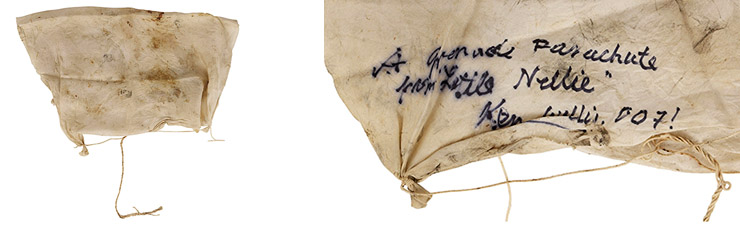 A grenade Parachute
from Little Nellie"
Ken Wallis. 007!